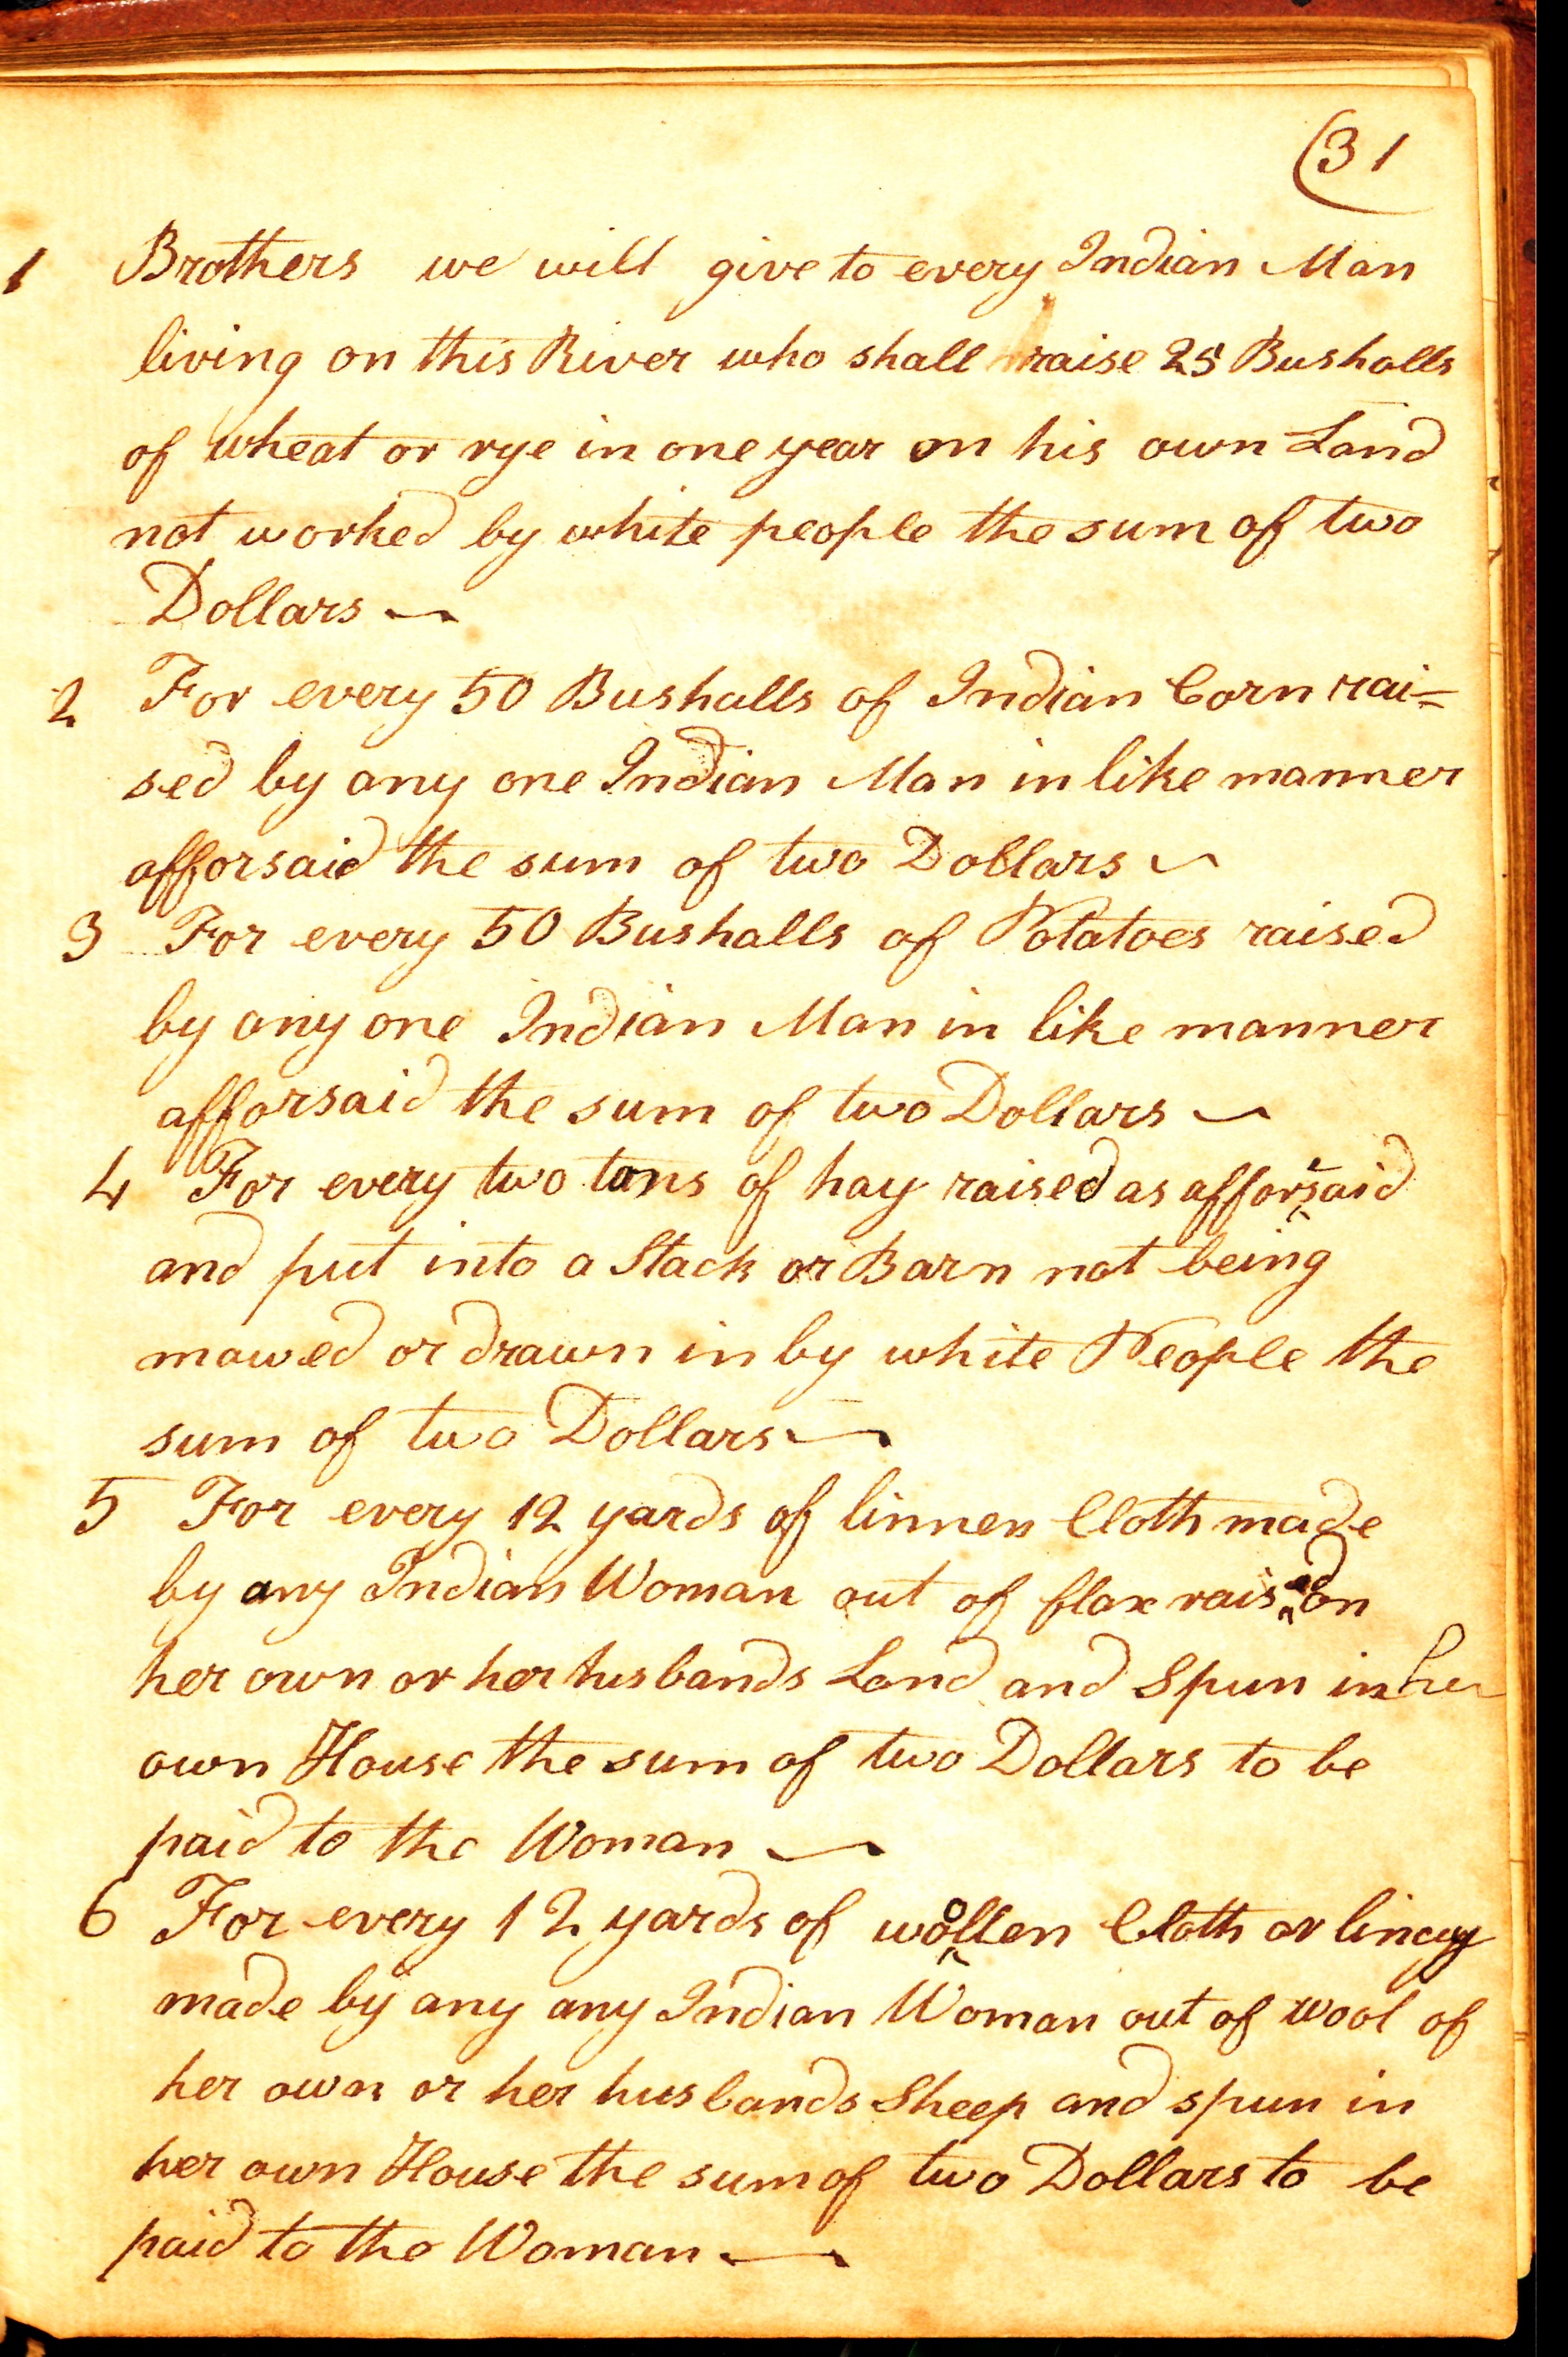 (31
1 Brothers we will give to every Indian Man
living on this River who shall raise 25 Bushalls
of wheat or rye in one year on his own Land
not worked by white people the sum of two
Dollars —
2 For every 50 Bushalls of Indian Corn rai=
sed by any one Indian Man in like manner
afforsaid the sum of two Dollars —
3 For every 50 Bushalls of Potatoes raised
by any one Indian Man in like manner
afforsaid the sum of two Dollars —
4 For every two tons of hay raised as afforesaid
and put into a Stack or Barn not being
mowed or drawn in by white People the
sum of two Dollars —
5 For every 12 yards of linnen Cloth made
by any Indian Woman out of flax raised on
her own or her husbands Land and Spun in her
own House the sum of two Dollars to be
paid to the Woman —
6 For every 12 yards of woollen Cloth or lincey
made by any any Indian Woman out of wool of
her own or her husbands Sheep and spun in
her own House the sum of two Dollars to be
paid to the Woman —